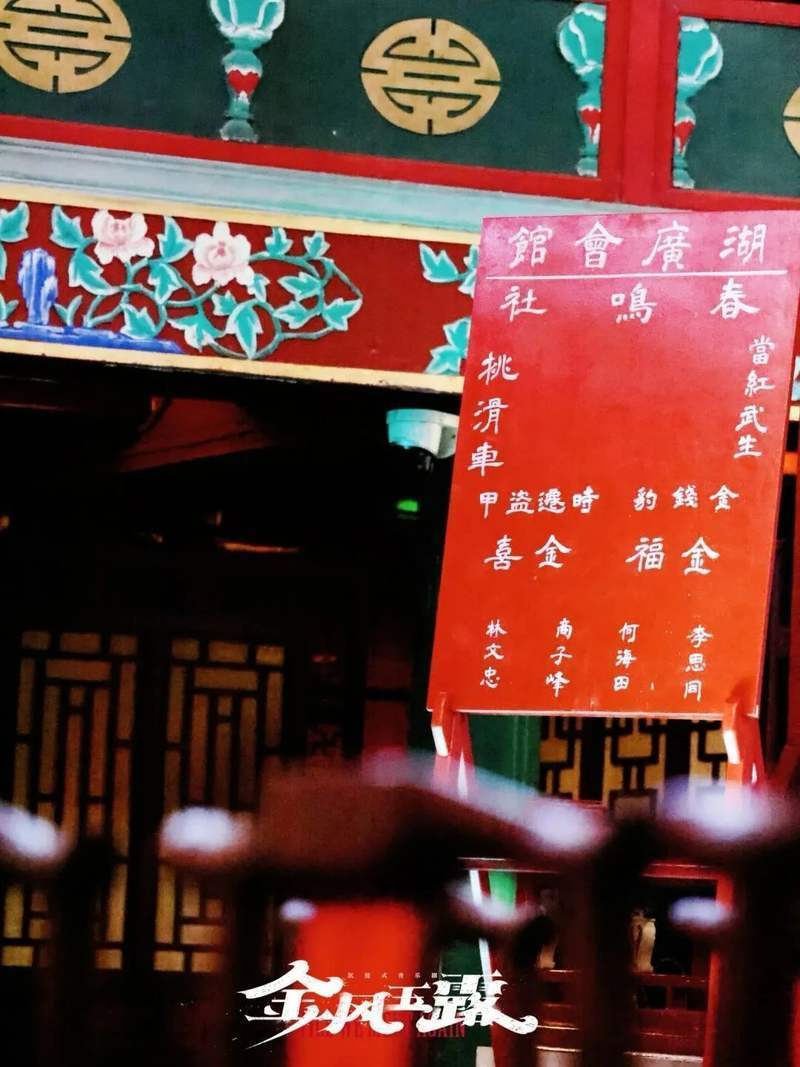 湖廣會館
春鳴社
當紅武生
挑滑車
金錢豹 時遷盗甲
金福 金喜
李思同
何海田
商子峰
林文忠
沉浸式音乐剧
金风玉露
AGAIN